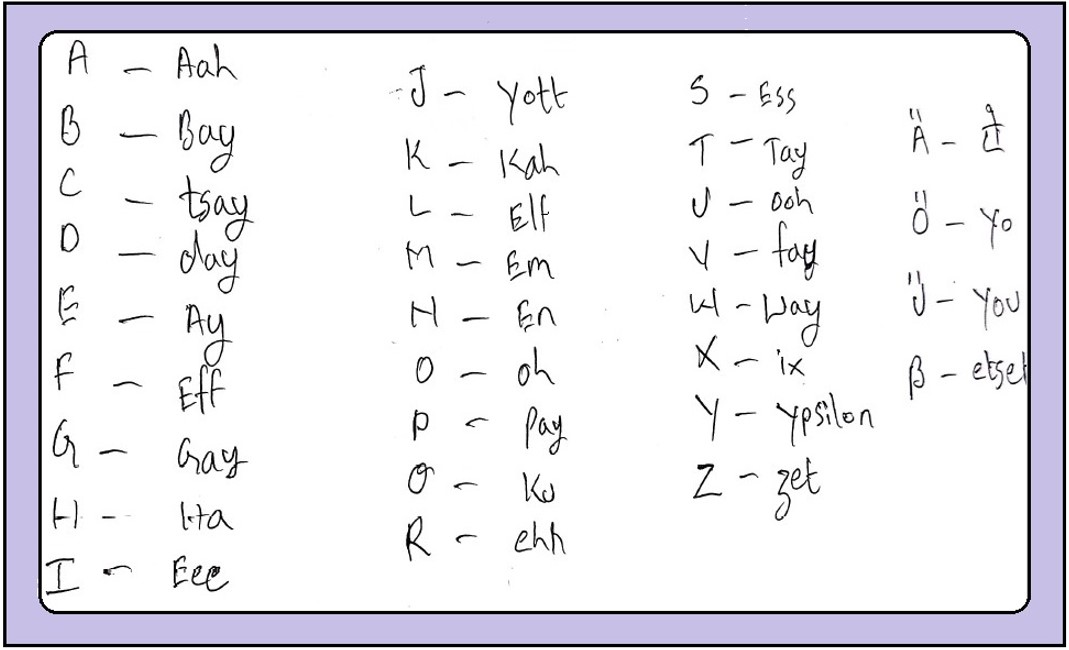 A - Aah
B - Bay
C - tsay
D - day
E - Ay
F - Eff
G - Gay
H - Ha
I - Eee
J - yott
K - Kah
L - Elf
M - Em
N - En
O - oh
P - Pay
Q - Ku
R - ehh
S - Ess
T - Tay
U - ooh
V - fay
W - Way
X - ix
Y - ypsilon
Z - zet
Ä -
Ö - yo
Ü - you
β - etset